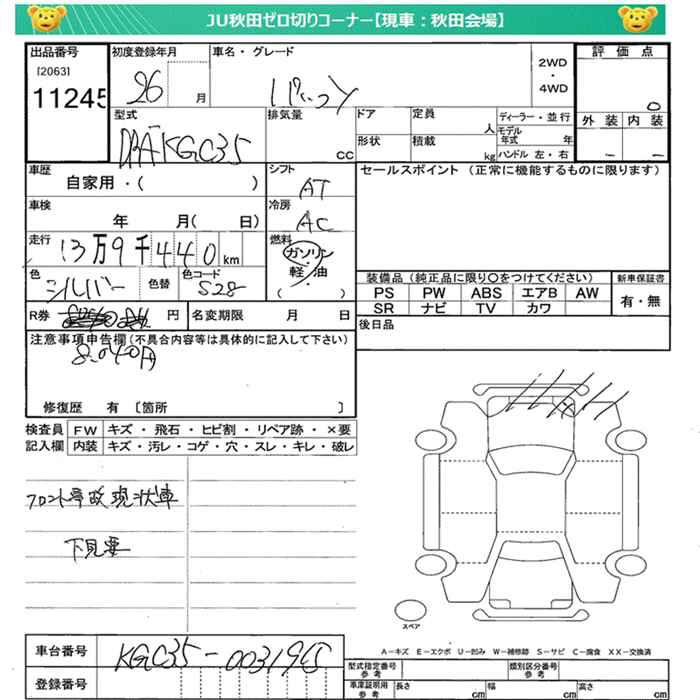 JU秋田ゼロ切りコーナー【現車：秋田会場】
出品番号
[2063]
11245
初度登録年月
26 月
車名・グレード
パッソ
2WD
・
4WD
評価点
0
外装 内装
－ －
型式
DBA KGC35
排気量
CC
ドア
定員
人
形状
積載
kg
ディーラー・並行
モデル年式 年
ハンドル 左・右
車歴
自家用・( )
シフト
AT
車検
年 月( 日)
冷房
AC
走行
13万9千440km
燃料
ガソリン
軽油
( ・ )
色
シルバー
色替
色コード
S28
R券 円
名変期限 月 日
セールスポイント (正常に機能するものに限ります)
装備品 (純正品に限り〇をつけてください)
PS PW ABS エアB AW
SR ナビ TV カワ
新車保証書
有・無
後日品
注意事項申告欄(不具合内容等は具体的に記入して下さい)
8.040円
修復歴 有 〔箇所 〕
検査員記入欄
FW キズ・飛石・ヒビ割・リペア跡・×要
内装 キズ・汚レ・コゲ・穴・スレ・キレ・破レ
フロント事故現状車
下見要
スペア
A－キズ E－エクボ U－凹み W－補修跡 S－サビ C－腐食 XX－交換済
車台番号
KGC35-0031965
登録番号
型式指定番号
参考
類別区分番号
参考
車庫証明用
参考
長さ cm
幅 cm
高さ cm